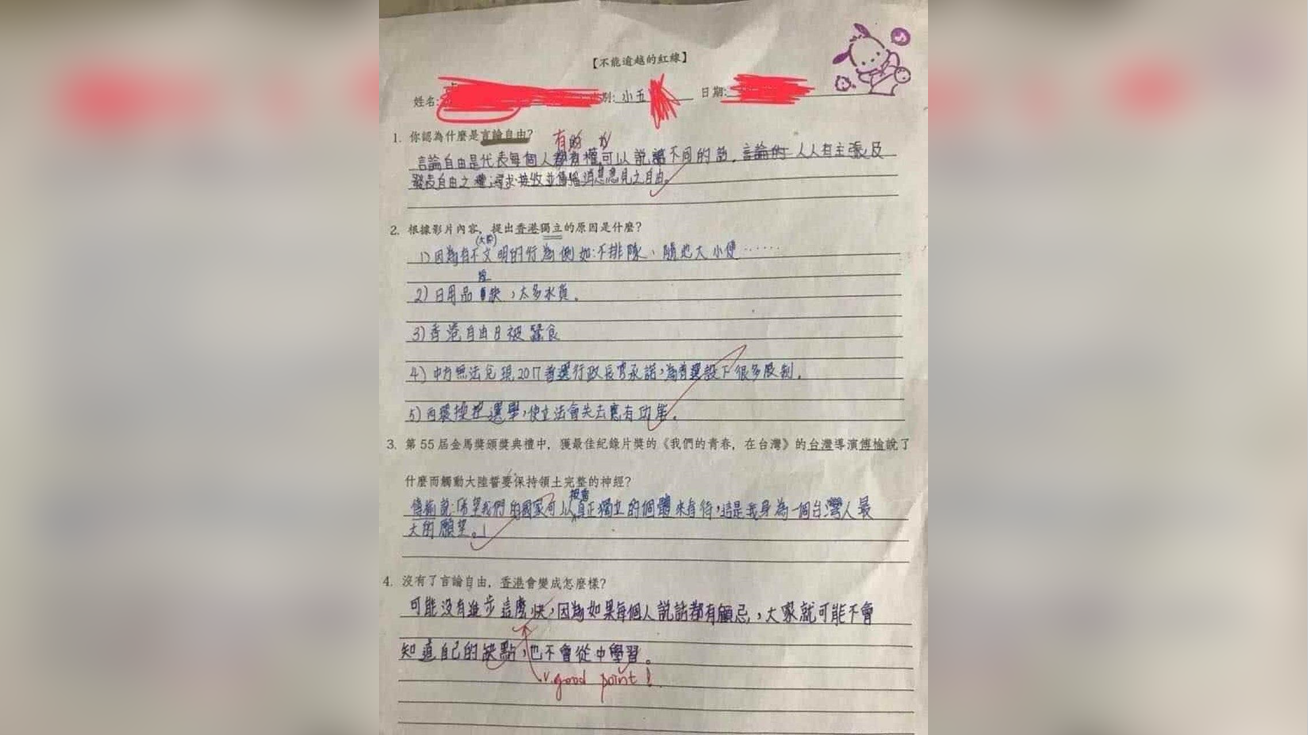 【不能逾越的紅線】
姓名: 別: 小五 日期:
1. 你認為什麼是言論自由?
有的
言論自由是代表每個人都有權可以說不同的話,言論的 人人有主張及
發表自由之權;尋求接收並傳播消息意見之自由。
2. 根據影片內容,提出香港獨立的原因是什麼?
1) 因為有不文明的行為例如:不排隊、隨地大小便……
2) 日用品短缺,太多水貨。
3) 香港自由日被蠶食
4) 中方無法兌現2017普選行政長官承諾,為普選設下很多限制。
5) 西環操控選舉,使立法會失去應有功能。
3. 第55屆金馬獎頒獎典禮中,獲最佳紀錄片獎的《我們的青春,在台灣》的台灣導演傅榆說了
什麼而觸動大陸誓要保持領土完整的神經?
傅榆說:「希望我們的國家可以被當真正獨立的個體來看待,這是我身為一個台灣人最
大的願望。」
4. 沒有了言論自由,香港會變成怎麼樣?
可能沒有進步這麼快,因為如果每個人說話都有顧忌,大家就可能不會
知道自己的缺點,也不會從中學習。
good point!